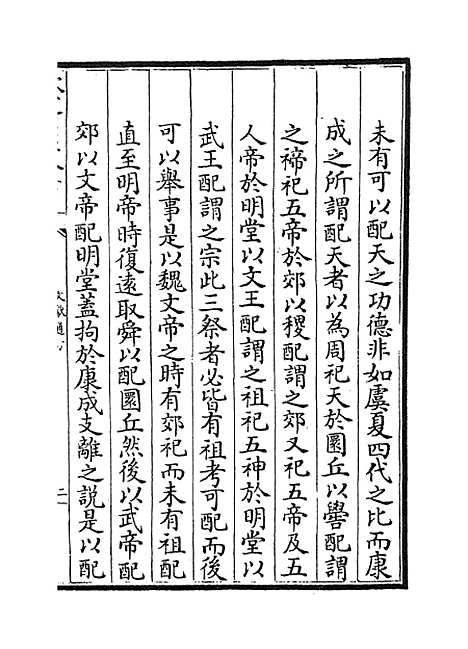 未有可以配天之功德非如虞夏四代之比而康
成之所謂配天者以為周祀天於圜丘以嚳配謂
之禘祀五帝於郊以稷配謂之郊又祀五帝及五
人帝於明堂以文王配謂之祖祀五神於明堂以
武王配謂之宗此三祭者必皆有祖考可配而後
可以舉事是以魏文帝之時有郊祀而未有祖配
直至明帝時復遠取舜以配圜丘然後以武帝配
郊以文帝配明堂蓋拘於康成支離之説是以配
文獻通考